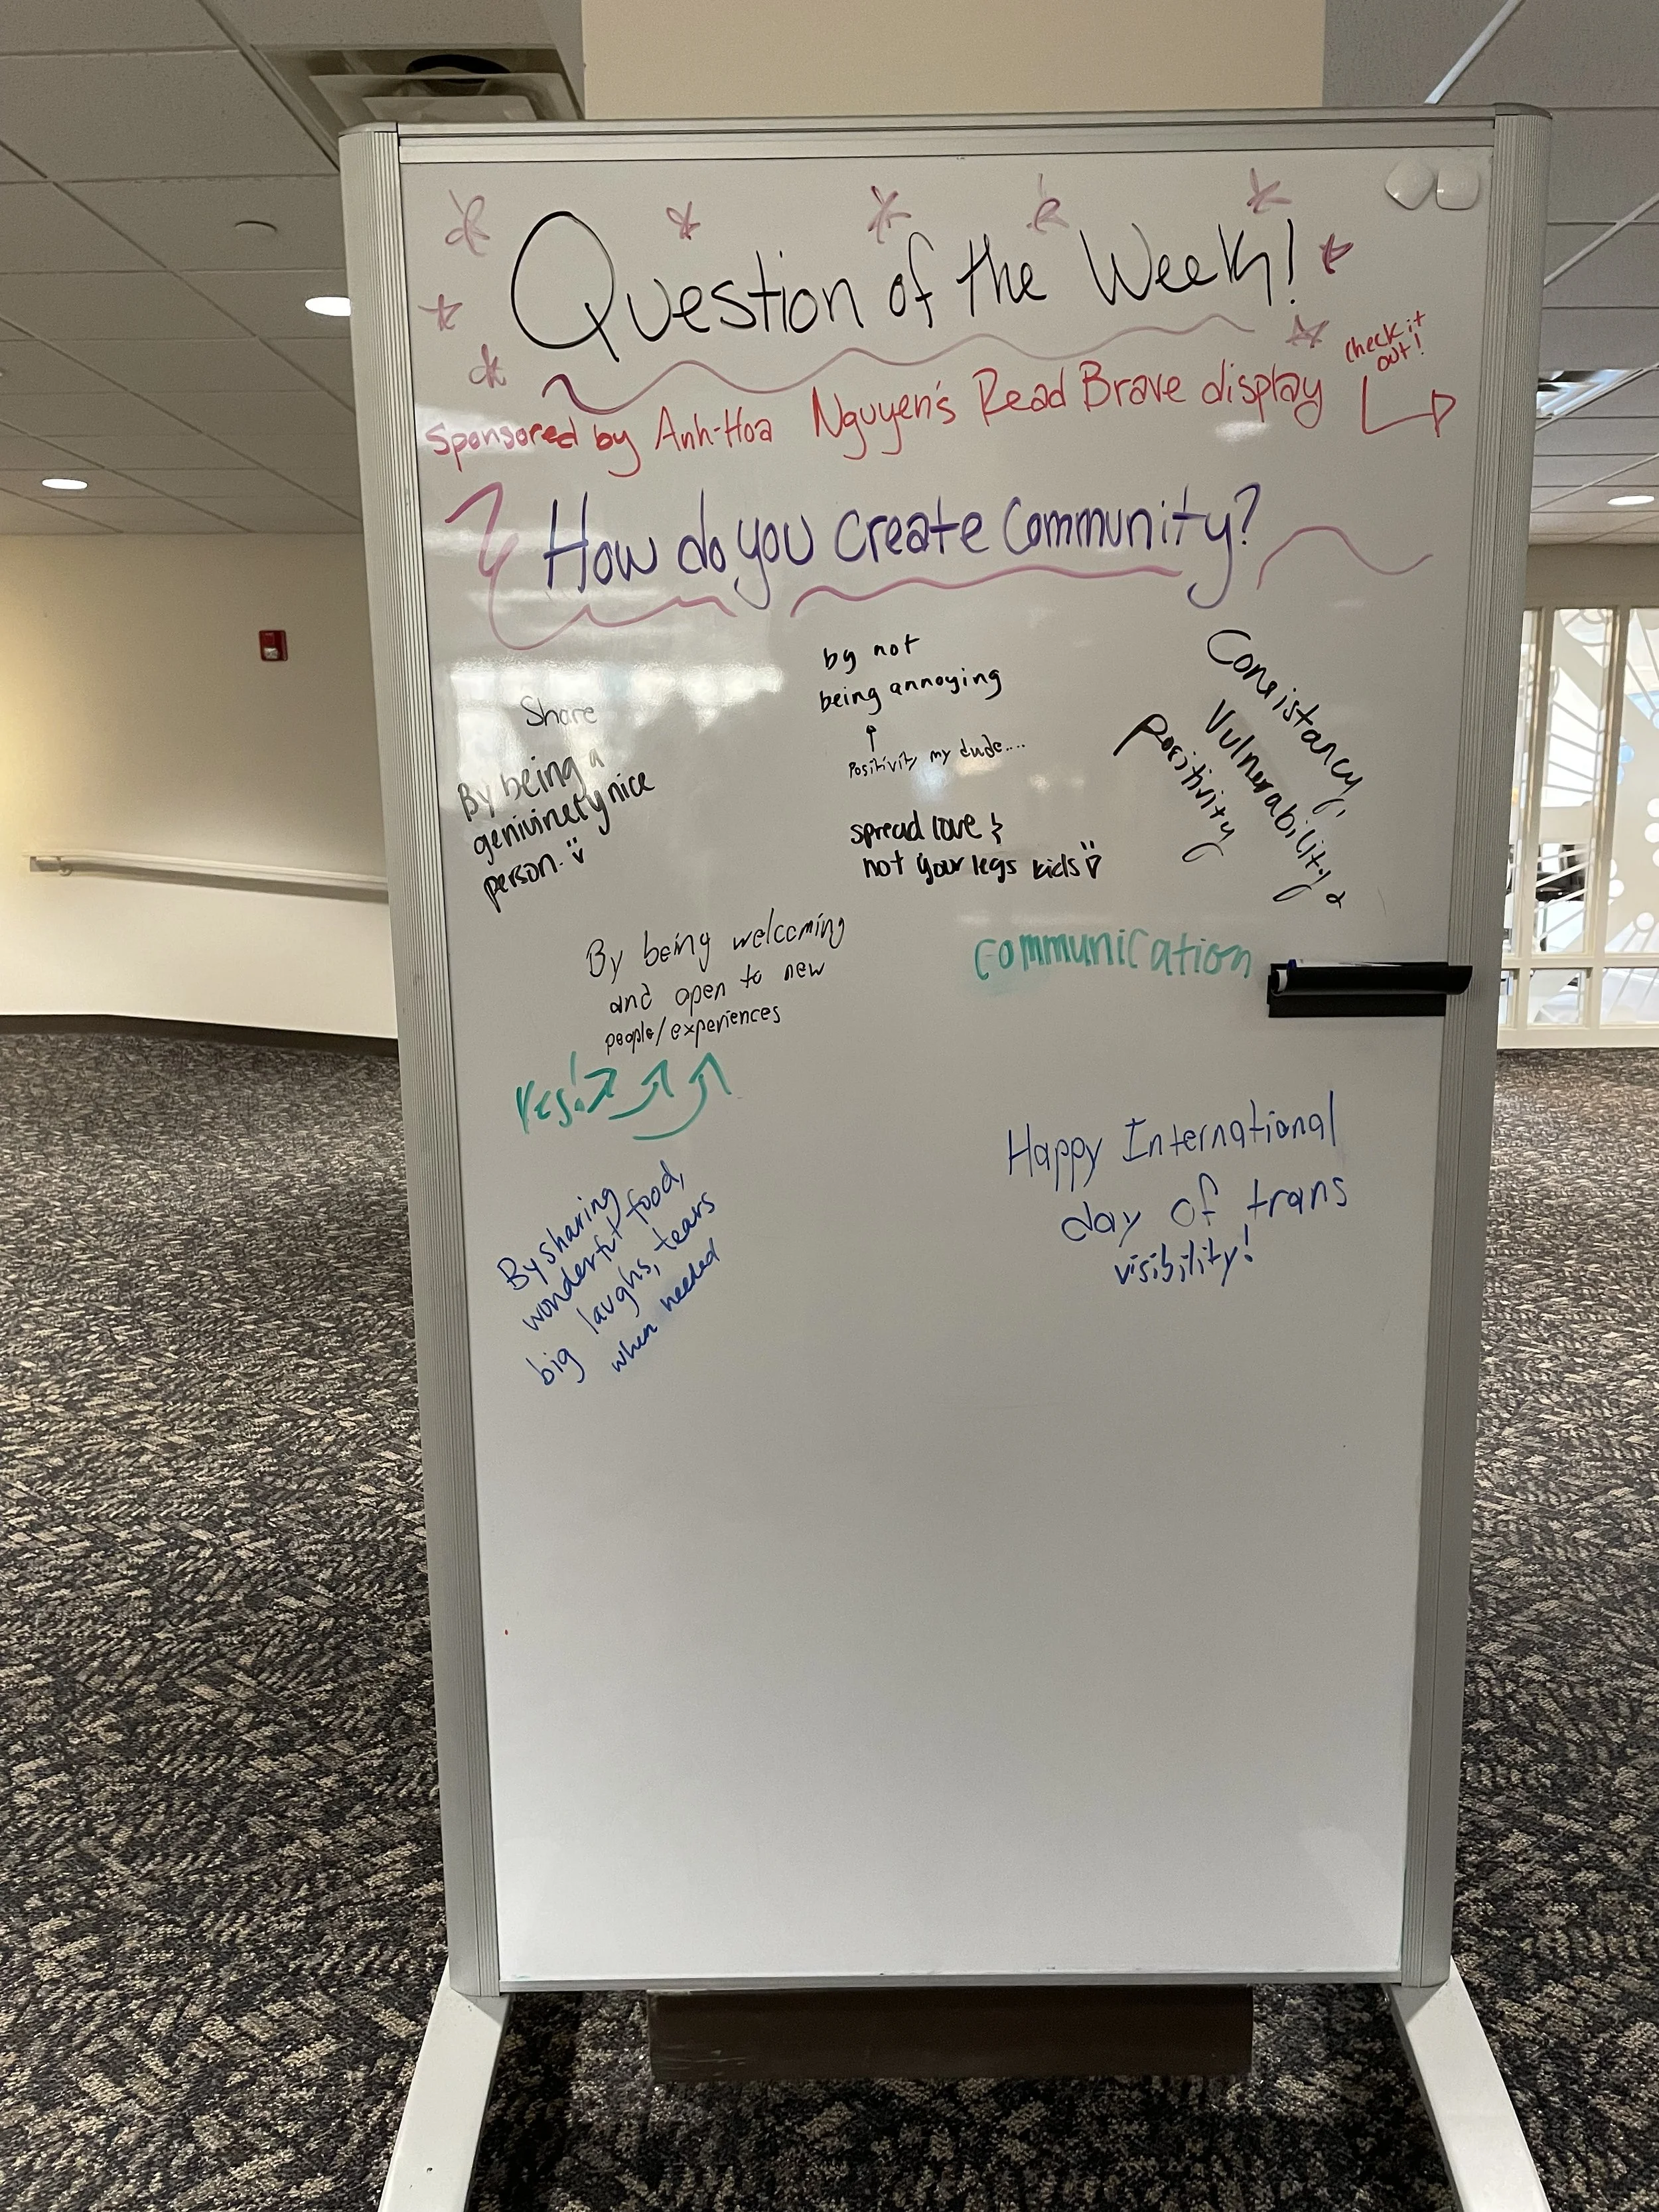 Question of the Week!
check it
out!
Sponsored by Anh-Hoa Nguyen's Read Brave display
How do you create community?
Share
By being a
genivinety nice
person.
by not
being annoying
Positivity my dude....
spread love &
not your legs kids
Consistancy,
Vulnerability &
positivity
By being welcoming
and open to new
people/experiences
Yes!
communication
By sharing
wonderful food,
big laughs, tears
when needed
Happy International
day of trans
visibility!